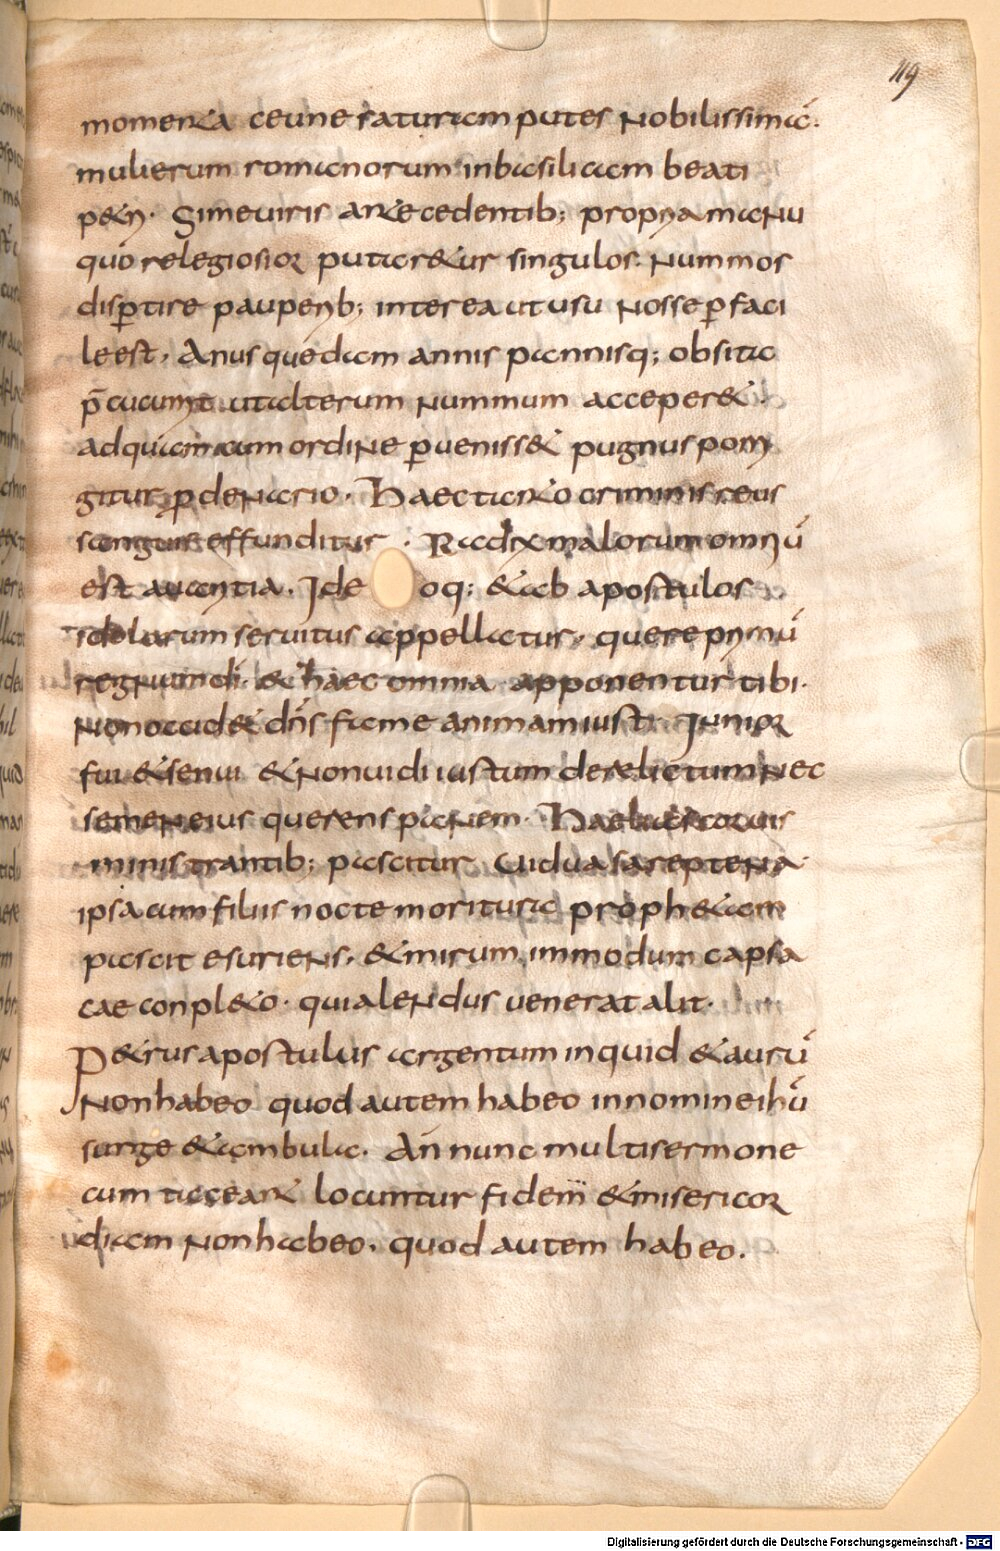 119
momenta ceuneraturam putes nobilissimā.
mulierum romanorum inbasilicam beati
petri. Simeviris antecedentib; propria manu
quo relegiosior putaretur singulos nummos
disꝑtire pauperib; interea ut usu nosse ꝑfaci
le est. Anus quedam annis pannisq; obsita
p̄cucurrit utalterum nummum acceperet.
adquam cum ordine ꝑvenisset pugnus porri
gitur ꝓ denario. Haec tanto criminis reus
sanguis effunditur. Radix malorum omniū
est avaritia. Ide oq; & ab apostulos
idolorum servitus appellatur. querepрimū
regnum di & haec omnia apponentur tibi.
Non occidet dn̄s fame animam iusti. Junior
fui & senui & non vidi iustum derelictum nec
semen eius querens panem. Haelias corvis
ministrantib; pascitur vidua sareptena.
ipsa cum filiis nocte moritura prophetam
pascit esuriens. & mirum immodum capsa
cae conpleto. qui alendus venerat alit.
Petrus apostulus argentum inquid & aurū
non habeo quod autem habeo in nomine ihū
surge & ambula. An̄ nunc multi sermone
cum taceant locuntur fidem & misericor
diam non habeo. quod autem habeo.
Digitalisierung gefördert durch die Deutsche Forschungsgemeinschaft - DFG